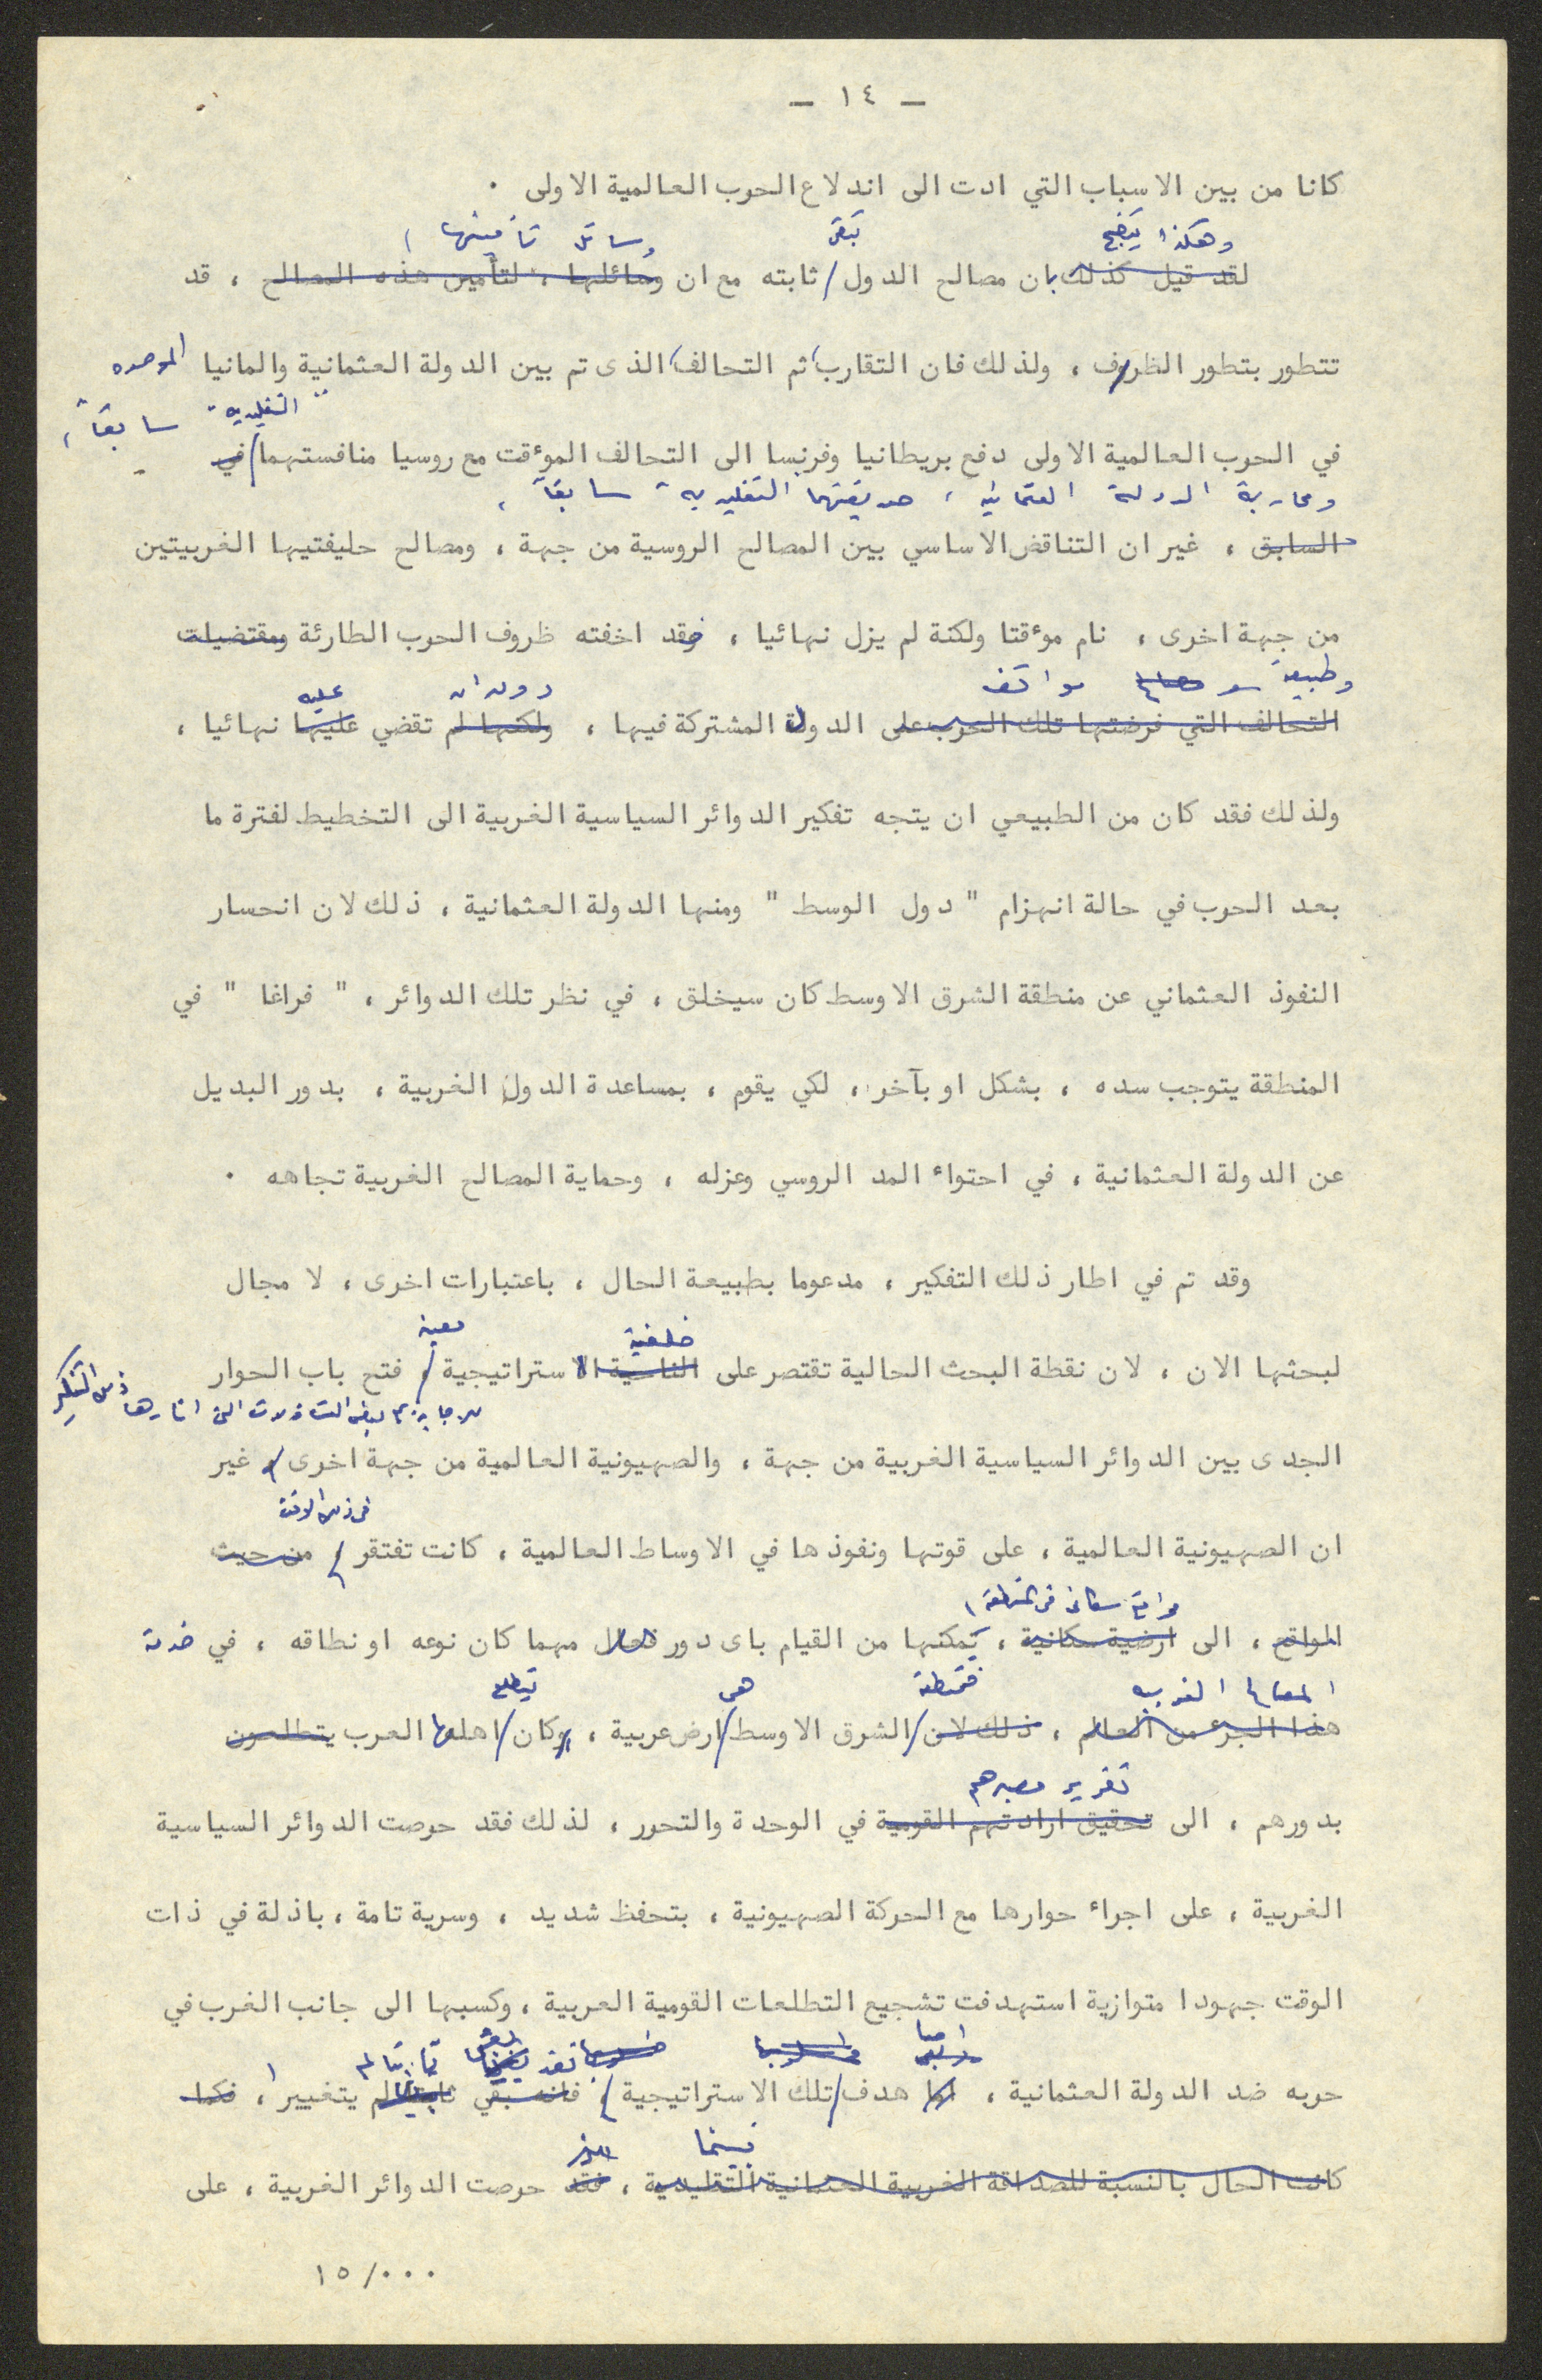 – ١٤ –
كانا من بين الاسباب التي ادت الى اندلاع الحرب العالمية الاولى ٠
وهكذا يتضح تبقى وسائل تأمينها ،
لقد قيل كذلك بان مصالح الدول / ثابته مع ان وسائلها ، لتأمين هذه المصالح ، قد
تتطور بتطور الظروف ، ولذلك فان التقارب ثم التحالف الذى تم بين الدولة العثمانية والمانيا الموحده
"التقليديه" سابقاً ،
في الحرب العالمية الاولى دفع بريطانيا وفرنسا الى التحالف الموءقت مع روسيا منافستهما / في
ومحاربة الدولة العثمانية ، صديقتهما "التقليديه" سابقاً ،
السابق ، غير ان التناقض الاساسي بين المصالح الروسية من جهة ، ومصالح حليفتيها الغربيتين
من جهة اخرى ، نام موءقتا ولكنة لم يزل نهائيا ، فقد اخفته ظروف الحرب الطارئة ومقتضيات
وطبيعة مواقف دون ان عليه
التحالف التي فرضتها تلك الحرب على الدول المشتركة فيها ، ولكنها لم تقضي عليها نهائيا ،
ولذلك فقد كان من الطبيعي ان يتجه تفكير الدوائر السياسية الغربية الى التخطيط لفترة ما
بعد الحرب في حالة انهزام " دول الوسط " ومنها الدولة العثمانية ، ذلك لان انحسار
النفوذ العثماني عن منطقة الشرق الاوسط كان سيخلق ، في نظر تلك الدوائر ، " فراغا " في
المنطقة يتوجب سده ، بشكل او بآخر ، لكي يقوم ، بمساعدة الدول الغربية ، بدور البديل
عن الدولة العثمانية ، في احتواء المد الروسي وعزله ، وحماية المصالح الغربية تجاهه ٠
وقد تم في اطار ذلك التفكير ، مدعوما بطبيعة الحال ، باعتبارات اخرى ، لا مجال
خلفية معينة
لبحثها الان ، لان نقطة البحث الحالية تقتصر على الناحية الاستراتيجية / فتح باب الحوار
للاجابة على بعض التساؤلات التي اثارها ذلك التفكير
الجدى بين الدوائر السياسية الغربية من جهة ، والصهيونية العالمية من جهة اخرى / غير
في ذلك الوقت
ان الصهيونية العالمية ، على قوتها ونفوذها في الاوساط العالمية ، كانت تفتقر / من حيث
سكاني في المنطقة ،
المواقع ، الى ارضية سكانية ، يمكنها من القيام باى دور فعال مهما كان نوعه او نطاقه ، في خدمة
المصالح الغربيه فمنطقة هي يتطلع
هذا الجزء من العالم ، ذلك لان / الشرق الاوسط / ارض عربية ، وكان / اهلها العرب يتطلعون
تقرير مصيرهم
بدورهم ، الى تحقيق ارادتهم القومية في الوحدة والتحرر ، لذلك فقد حرصت الدوائر السياسية
الغربية ، على اجراء حوارها مع الحركة الصهيونية ، بتحفظ شديد ، وسرية تامة ، باذلة في ذات
الوقت جهودا متوازية استهدفت تشجيع التطلعات القومية العربية ، وكسبها الى جانب الغرب في
اما فقد ثابتا لم
حربه ضد الدولة العثمانية ، اما هدف / تلك الاستراتيجية / فانه بقي ثابتا لم يتغيير ، فكما
فبينما
كانت الحال بالنسبة للصداقة الغربية العثمانية التقليدية ، فقد حرصت الدوائر الغربية ، على
١٥/٠٠٠